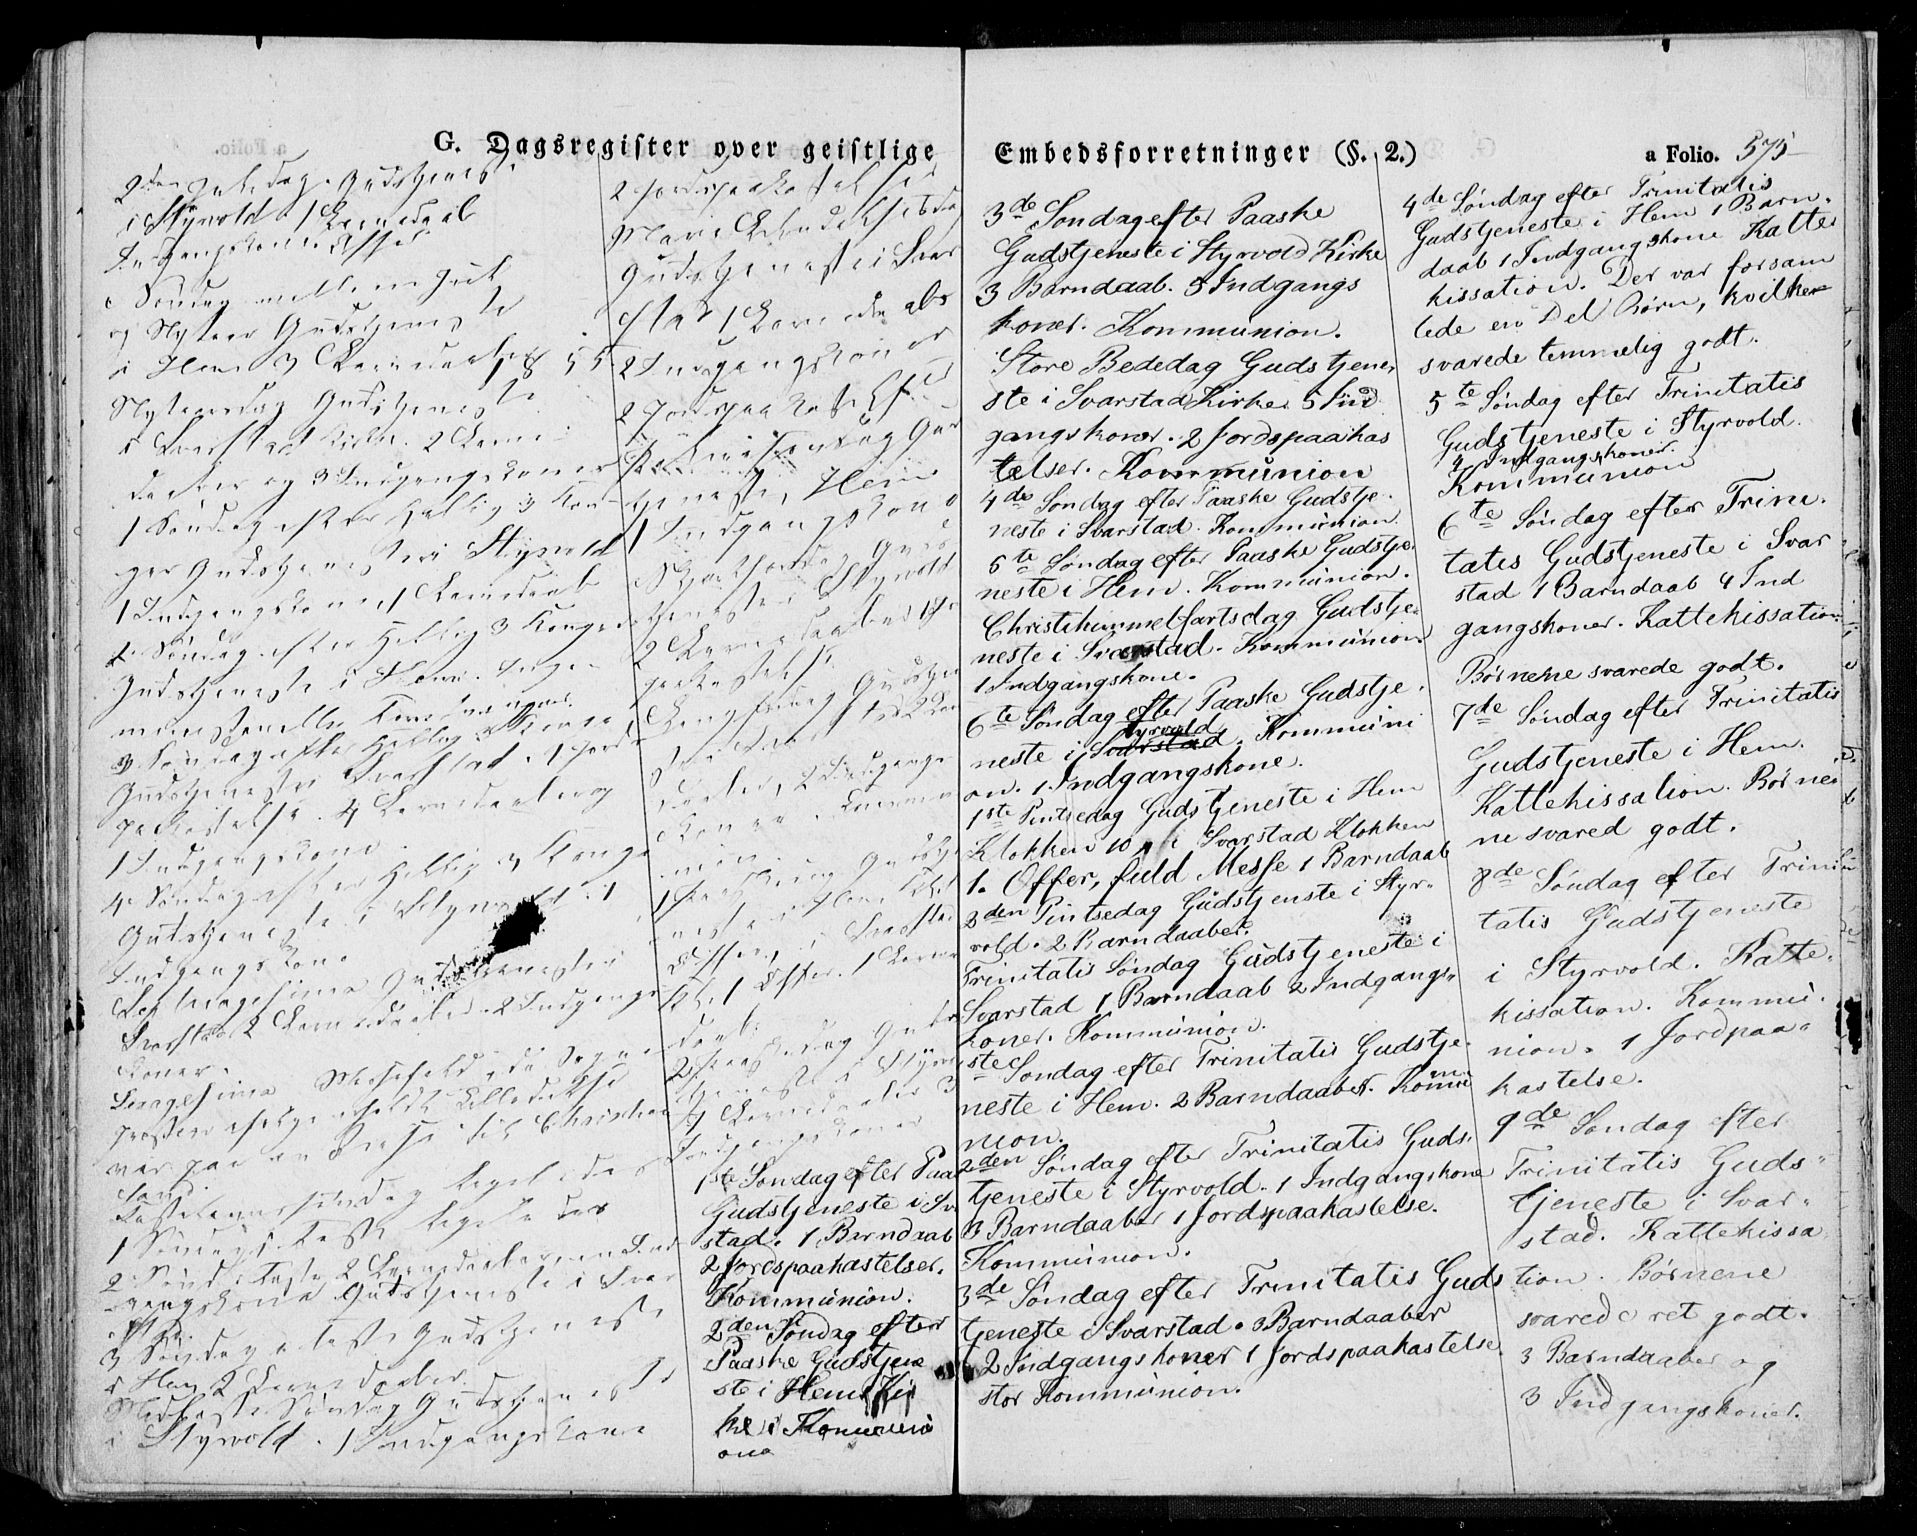 G. Dagsregister over geistlige
2den Juledag Gudstjeneste
i Styrvold. 1 Barnedaab
Indgangskone
Søndag mellem Juul
og Nytaar Gudstjeneste
i Hem 3 Barnedaab
Nytaarsdag Gudstjeneste
i Svarstad Kirke. 2 Barne
daaber og 3 Indgangskoner
1 Søndag efter Hellig 3 Kon
ger Gudstjeneste i Styrvold
1 Indgangskone, 1 Barnedaab
2 Søndag efter Hellig 3 Konger
Gudstjeneste i Hem. Ingen
ministerielle Forretninger
3 Søndag efter Hellig 3 Konger
Gudstjeneste i Svarstad. 1 Jords
paakastelse. 4 Barnedaaber og
1 Indgangskone.
4 Søndag efter Hellig 3 Konge
Gudstjeneste i Styrvold. 1
Indgangskone
Septuagesima Gudstjeneste i
Svarstad 2 Barnedaaber. 2 Indgangs
koner.
Sexagesima Messefald
var paa en Reise til Christian
sand.
Fastelavnssøndag ligeledes
1 Søndag i Faste ligeledes
2 Sønd. i Faste 2 Barnedaaber en Ind
gangskone Gudstjeneste i Svar
stad.
3 Søndag i Faste Gudstjeneste
i Hem 2 Barnedaaber.
Midfaste Søndag Gudstjeneste
i Styrvold. 1 Indgangskone
2 Jordspaakastelser
Mariæ Bebudelsesdag
Gudstjeneste i Svar
stad 1 Barnedaab
2 Indgangskoner
2 Jordspaakastelser
Palmesøndag Gud
tjeneste i Hem
1 Indgangskone
Skjærtorsdag Guds
tjeneste i Styrvold
2 Barnedaaber 1 Jords
paakastelse
Langfredag Gudstjen
este i Svarstad 2 Barne
daaber, 2 Indgangs
koner. Kommu
nion
1 Paaskedag Gudstje
neste i Hem
Offer, i Svarstad
1 Offer. 1 Barne
daab.
2 Paaskedag Guds
tjeneste i Styrvold
4 Barnedaaber 3
Indgangskoner
1ste Søndag efter Paas
Gudstjeneste i Sv
stad. 1 Barndaab
2 Jordspaakastelser.
Kommunion.
2den Søndag efter
Paaske Gudstjene
ste i Hems Kir
ke. Kommuni
one
Embedsforretninger (§. 2.)
a Folio. 575
3de Søndag efter Paaske
Gudstjeneste i Styrvold Kirke
3 Barndaab. 5 Indgangs
koner. Kommunion.
Store Bededag Gudstjene,
ste i Svarstad Kirke. 5 Ind
gangskoner. 2 Jordspaakas
telser. Kommunion
4de Søndag efter Paaske Gudstje.
neste i Svarstad. Kommunion.
5te Søndag efter Paaske Gudstje.
neste i Hem. Kommunion.
Christihimmelfartsdag Gudstje.
neste i Svarstad. Kommunion
1 Indgangskone.
6te Søndag efter Paaske Gudstje.
neste i Svarstad Styrvold. Kommuni
on. 1 Indgangskone.
1ste Pintsedag Gudstjeneste i Hem
Klokken 10 i Svarstad Klokken
1. Offer, fuld Messe 1 Barndaab
2den Pintsedag Gudstjenste i Styr.
vold. 2 Barndaaber.
Trinitatis Søndag Gudstjeneste i
Svarstad 1 Barndaab 2 Indgangs.
koner. Kommunion.
1ste Søndag efter Trinitatis Gudstje.
neste i Hem. 2 Barndaaber. Kommu
nion.
2den Søndag efter Trinitatis Guds.
tjeneste i Styrvold. 1 Indgangskone
3 Barndaaber 1 Jordspaakastelse.
Kommunion.
3de Søndag efter Trinitatis Guds
tjeneste i Svarstad. 3 Barndaaber
2 Indgangskoner 1 Jordspaakastelse
stor Kommunion.
4de Søndag efter Trinitatis
Gudstjeneste i Hem 1 Barn.
daab 1 Indgangskone Katte
kissation. Der var forsam
lede en Del Børn, hvilke
svarede temmelig godt.
5te Søndag efter Trinitatis
Gudstjeneste i Styrvold.
4 Indgangskoner.
Kommunion
6te Søndag efter Trini.
tatis Gudstjeneste i Svar
stad 1 Barndaab 4 Ind
gangskoner. Kattekissation
Børnene svarede godt.
7de Søndag efter Trinitatis
Gudstjeneste i Hem.
Kattekissation. Børne
ne svared godt.
8de Søndag efter Trini
tatis Gudstjeneste
i Styrvold. Katte.
kissation. Kommu.
nion. 1 Jordpaa.
kastelse.
9de Søndag efter
Trinitatis Guds.
tjeneste i Svar.
stad. Kattekissa
tion. Børnene
svarede ret godt.
3 Barndaaber og
3 Indgangskoner.